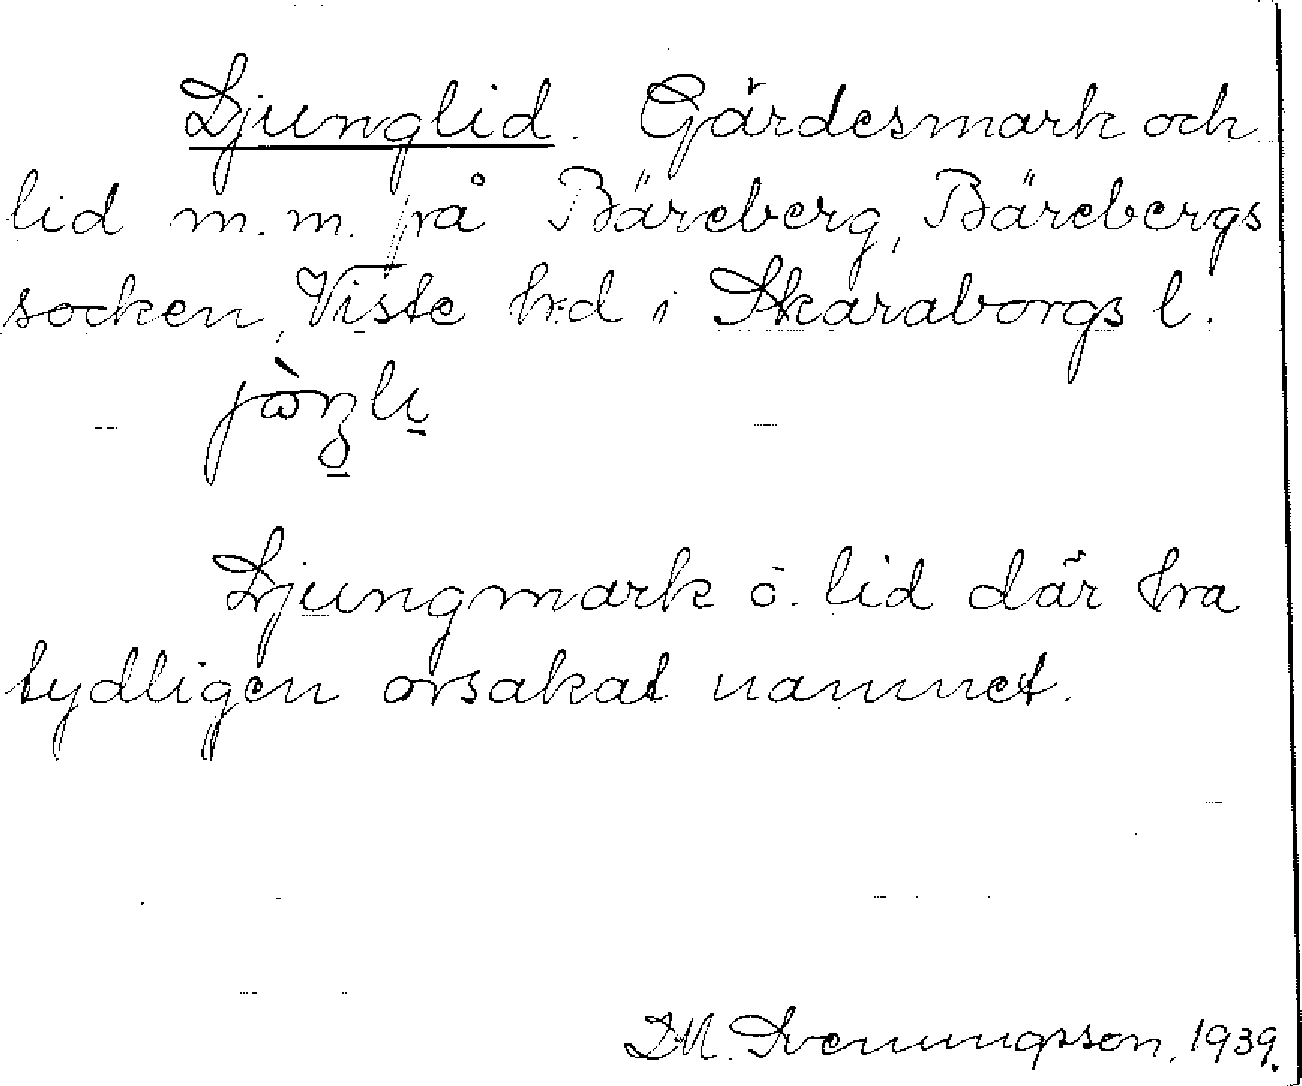 Ljunglid. Gärdesmark och
lid m.m. på Bäreberg, Bärebergs
socken, Viste hrd i Skaraborgs l.
Ljungmark o. lid där bra
tydligen orsakat namnet.
D.M. Svenungsson, 1939.